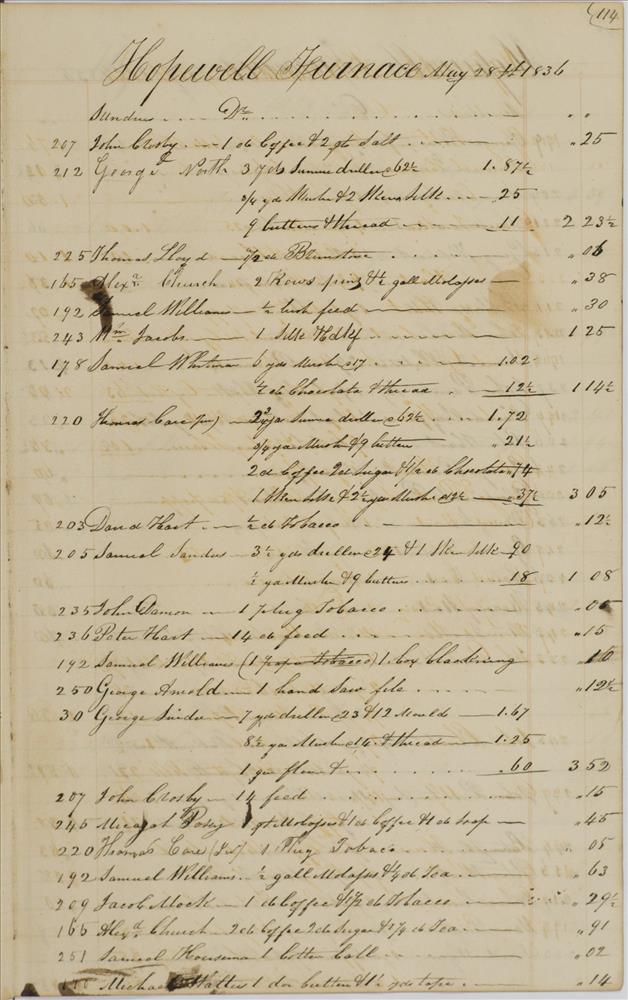 114
Hopewell Furnace May 28th 1836
Sundries Dr. " "
207 John Crosby 1 do Coffee & 2 qts Salt " 25
212 George North 3 yds Summer drillen @ 62½ 1.87½
3/4 yds Muslin & 2 Skeins Silk 25
9 buttons & thread 11 2 23½
225 Thomas Lloyd 1/2 do Brimstone " 06
165 Alexr. Church 2 Rows pins & ½ gall Molasses " 38
192 Samuel Williams ½ bush feed " 30
243 Wm. Jacobs 1 Silk Hdkf 1 25
178 Samuel Whitman 6 yds Muslin @ 17 1.02
½ do Chocolate & thread 12½ 1 14½
220 Thomas Care (Jun) 2¾ yds Summer drillen @ 62½ 1.72
3/4 yd Muslin & 9 buttons " 21½
2 do Coffee 2 do Sugar & 1/2 do Chocolate " 74
1 Skein Silk & 2½ yds Muslin @ 12½ " 37½ 3 05
203 David Hart ½ do Tobacco " 12½
205 Samuel Sanders 3½ yds drillen @ 24 & 1 Skein Silk 90
½ yd Muslin & 9 buttons 18 1 08
235 John Damon 1 plug Tobacco " 05
236 Peter Hart 14 do feed " 15
192 Samuel Williams (1 paper Tobacco) 1 box Blackening " 10
250 George Arnold 1 hand Saw file " 12½
30 George Snider 7 yds drillen @ 23 & 12 Moulds 1.67
8½ yds Muslin @ 14 & thread 1.25
1 qr flour .60 3 52
207 John Crosby 14 feed " 15
245 Micajah Posey 1 qt Molasses & 1 do Coffee & 1 do Soap " 45
220 Thomas Care (Jur) 1 Plug Tobaco " 05
192 Samuel Williams ½ gall Molasses & ¼ do Tea " 63
209 Jacob Mock 1 do Coffee & 1/2 do Tobacco " 29½
165 Alexd. Church 2 do Coffee 2 do Sugar & 1/4 do Tea " 91
251 Samuel Houseman 1 Cotton Ball " 02
Michael Walters 1 doz buttons & 1½ yds tape " 14